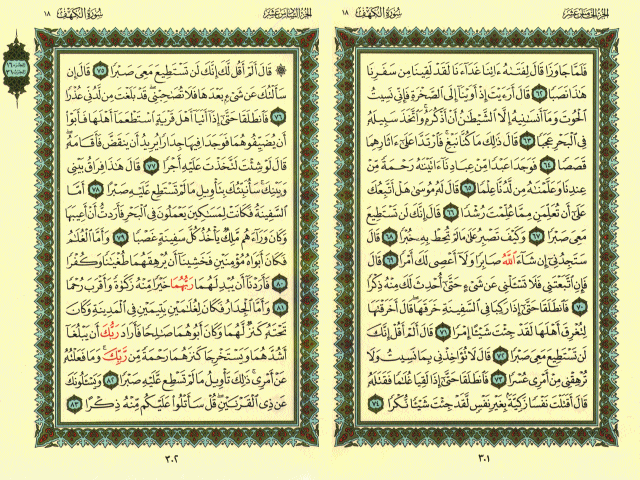 الجزء الخامس عشر سُورَةُ الكَهْفِ ١٨
فَلَمَّا جَاوَزَا قَالَ لِفَتَىٰهُ ءَاتِنَا غَدَآءَنَا لَقَدْ لَقِينَا مِن سَفَرِنَا
هَٰذَا نَصَبًا ٦٢ قَالَ أَرَءَيْتَ إِذْ أَوَيْنَآ إِلَى ٱلصَّخْرَةِ فَإِنِّى نَسِيتُ
ٱلْحُوتَ وَمَآ أَنسَىٰنِيهُ إِلَّا ٱلشَّيْطَٰنُ أَنْ أَذْكُرَهُۥ وَٱتَّخَذَ سَبِيلَهُۥ
فِى ٱلْبَحْرِ عَجَبًا ٦٣ قَالَ ذَٰلِكَ مَا كُنَّا نَبْغِ فَٱرْتَدَّا عَلَىٰٓ ءَاثَارِهِمَا
قَصَصًا ٦٤ فَوَجَدَا عَبْدًا مِّنْ عِبَادِنَآ ءَاتَيْنَٰهُ رَحْمَةً مِّنْ
عِندِنَا وَعَلَّمْنَٰهُ مِن لَّدُنَّا عِلْمًا ٦٥ قَالَ لَهُۥ مُوسَىٰ هَلْ أَتَّبِعُكَ
عَلَىٰٓ أَن تُعَلِّمَنِ مِمَّا عُلِّمْتَ رُشْدًا ٦٦ قَالَ إِنَّكَ لَن تَسْتَطِيعَ
مَعِىَ صَبْرًا ٦٧ وَكَيْفَ تَصْبِرُ عَلَىٰ مَا لَمْ تُحِطْ بِهِۦ خُبْرًا ٦٨ قَالَ
سَتَجِدُنِىٓ إِن شَآءَ ٱللَّهُ صَابِرًا وَلَآ أَعْصِى لَكَ أَمْرًا ٦٩ قَالَ
فَإِنِ ٱتَّبَعْتَنِى فَلَا تَسْـَٔلْنِى عَن شَىْءٍ حَتَّىٰٓ أُحْدِثَ لَكَ مِنْهُ ذِكْرًا
٧٠ فَٱنطَلَقَا حَتَّىٰٓ إِذَا رَكِبَا فِى ٱلسَّفِينَةِ خَرَقَهَا قَالَ أَخَرَقْتَهَا
لِتُغْرِقَ أَهْلَهَا لَقَدْ جِئْتَ شَيْـًٔا إِمْرًا ٧١ قَالَ أَلَمْ أَقُلْ إِنَّكَ
لَن تَسْتَطِيعَ مَعِىَ صَبْرًا ٧٢ قَالَ لَا تُؤَاخِذْنِى بِمَا نَسِيتُ وَلَا
تُرْهِقْنِى مِنْ أَمْرِى عُسْرًا ٧٣ فَٱنطَلَقَا حَتَّىٰٓ إِذَا لَقِيَا غُلَٰمًا فَقَتَلَهُۥ
قَالَ أَقَتَلْتَ نَفْسًا زَكِيَّةًۢ بِغَيْرِ نَفْسٍ لَّقَدْ جِئْتَ شَيْـًٔا نُّكْرًا ٧٤
٣٠١
الجزء السادس عشر سُورَةُ الكَهْفِ ١٨
۞ قَالَ أَلَمْ أَقُل لَّكَ إِنَّكَ لَن تَسْتَطِيعَ مَعِىَ صَبْرًا ٧٥ قَالَ إِن
سَأَلْتُكَ عَن شَىْءٍۭ بَعْدَهَا فَلَا تُصَٰحِبْنِى قَدْ بَلَغْتَ مِن لَّدُنِّى عُذْرًا
٧٦ فَٱنطَلَقَا حَتَّىٰٓ إِذَآ أَتَيَآ أَهْلَ قَرْيَةٍ ٱسْتَطْعَمَآ أَهْلَهَا فَأَبَوْا۟
أَن يُضَيِّفُوهُمَا فَوَجَدَا فِيهَا جِدَارًا يُرِيدُ أَن يَنقَضَّ فَأَقَامَهُۥ
قَالَ لَوْ شِئْتَ لَتَّخَذْتَ عَلَيْهِ أَجْرًا ٧٧ قَالَ هَٰذَا فِرَاقُ بَيْنِى
وَبَيْنِكَ سَأُنَبِّئُكَ بِتَأْوِيلِ مَا لَمْ تَسْتَطِع عَّلَيْهِ صَبْرًا ٧٨ أَمَّا
ٱلسَّفِينَةُ فَكَانَتْ لِمَسَٰكِينَ يَعْمَلُونَ فِى ٱلْبَحْرِ فَأَرَدتُّ أَنْ أَعِيبَهَا
وَكَانَ وَرَآءَهُم مَّلِكٌ يَأْخُذُ كُلَّ سَفِينَةٍ غَصْبًا ٧٩ وَأَمَّا ٱلْغُلَٰمُ
فَكَانَ أَبَوَاهُ مُؤْمِنَيْنِ فَخَشِينَآ أَن يُرْهِقَهُمَا طُغْيَٰنًا وَكُفْرًا
٨٠ فَأَرَدْنَآ أَن يُبْدِلَهُمَا رَبُّهُمَا خَيْرًا مِّنْهُ زَكَوٰةً وَأَقْرَبَ رُحْمًا
٨١ وَأَمَّا ٱلْجِدَارُ فَكَانَ لِغُلَٰمَيْنِ يَتِيمَيْنِ فِى ٱلْمَدِينَةِ وَكَانَ
تَحْتَهُۥ كَنزٌ لَّهُمَا وَكَانَ أَبُوهُمَا صَٰلِحًا فَأَرَادَ رَبُّكَ أَن يَبْلُغَآ
أَشُدَّهُمَا وَيَسْتَخْرِجَا كَنزَهُمَا رَحْمَةً مِّن رَّبِّكَ وَمَا فَعَلْتُهُۥ
عَنْ أَمْرِى ذَٰلِكَ تَأْوِيلُ مَا لَمْ تَسْطِع عَّلَيْهِ صَبْرًا ٨٢ وَيَسْـَٔلُونَكَ
عَن ذِى ٱلْقَرْنَيْنِ قُلْ سَأَتْلُوا۟ عَلَيْكُم مِّنْهُ ذِكْرًا ٨٣
٣٠٢